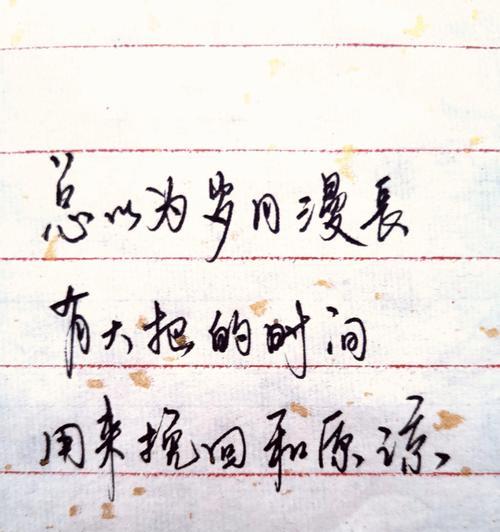 总以为岁月漫長
有大把的时间
用来挽回和原谅